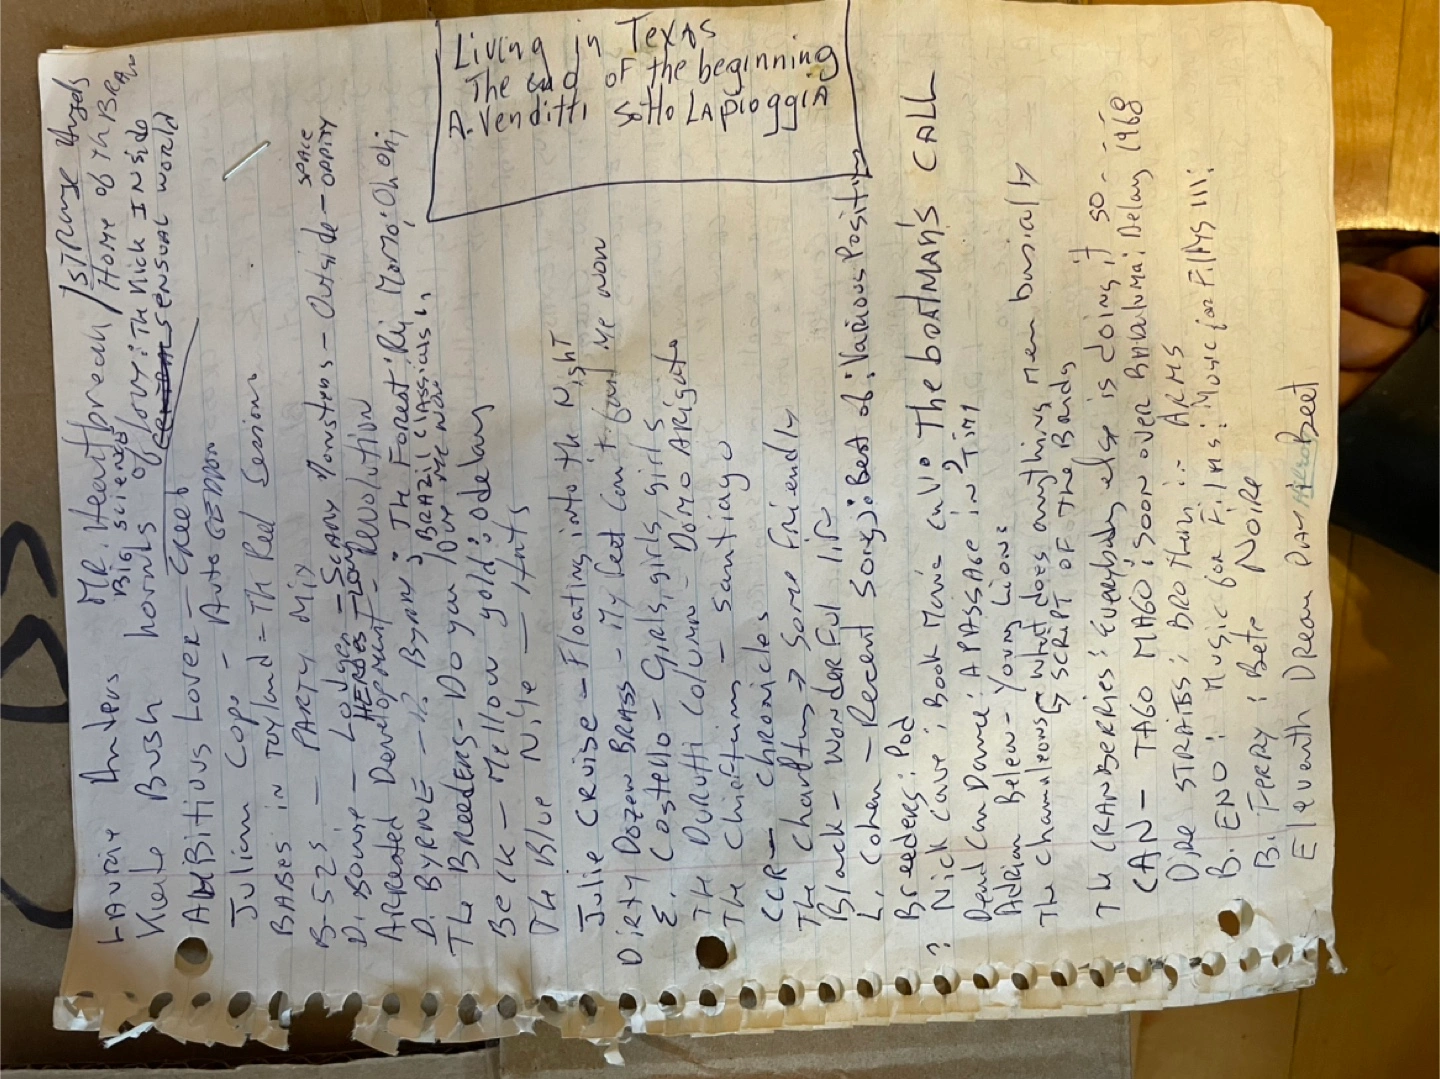 Living in Texas
The end of the beginning
A. Venditti Sotto LA pioggiA
Laurie Anders MR. Heartbreak / STRange Angels
Big science Home of th BRAv
Kate Bush hounds of love: TH Kick INside
SENSUAL WORLD
AMBitious Lover - Greed
Julian Cope - AutoGEDDON
BABES in TOYland = TH Red Session
B-52s - PARTY Mix
D. Bowie - Lodger - SCARY Monsters - Outside - SPACE ODDITY
HEROES - LOW
ARReated Development - Revolution
D. BYRNE - R? Byrne: The Forest: Rij Momo: Oh Oh;
BRAZIL Classials 1
The Breeders - Do you love me now
Beck - Mellow gold: odelay
The Blue Nile - Hats
Julie CRUise - Floating into the NighT
DIRTY Dozen BRASS - My feet can't fail me now
E. Costello - Girls, girls, girls
TH Durutti Column - Domo ARigato
The Chieftains - Santiago
CCR - Chronicles
The Charltns → Some Friendly
Black - WonderFul life
L. Cohen - Recent Songs: Best of: Various Positin
Breeders: Pod
? Nick Cave: Book Movie CAVE The boatmAN's CALL
Dead Can Dance: A PASSAge in Time
Adrian Belew - Young Lions
The Chameleons ↳ What does anything mean basically
↳ SCRIPT OF the Bridge
TH CRANBERRIES: Everybody else is doing it so --
CAN - TAGO MAGO: Soon over BAbaluma: Delay 1968
DIRE STRAITS: BROTHERS IN ARMS
B. ENO: Music for Films: Music for Films III:
B. FERRY: Bete Noire
Eleventh Dream DAy Beet